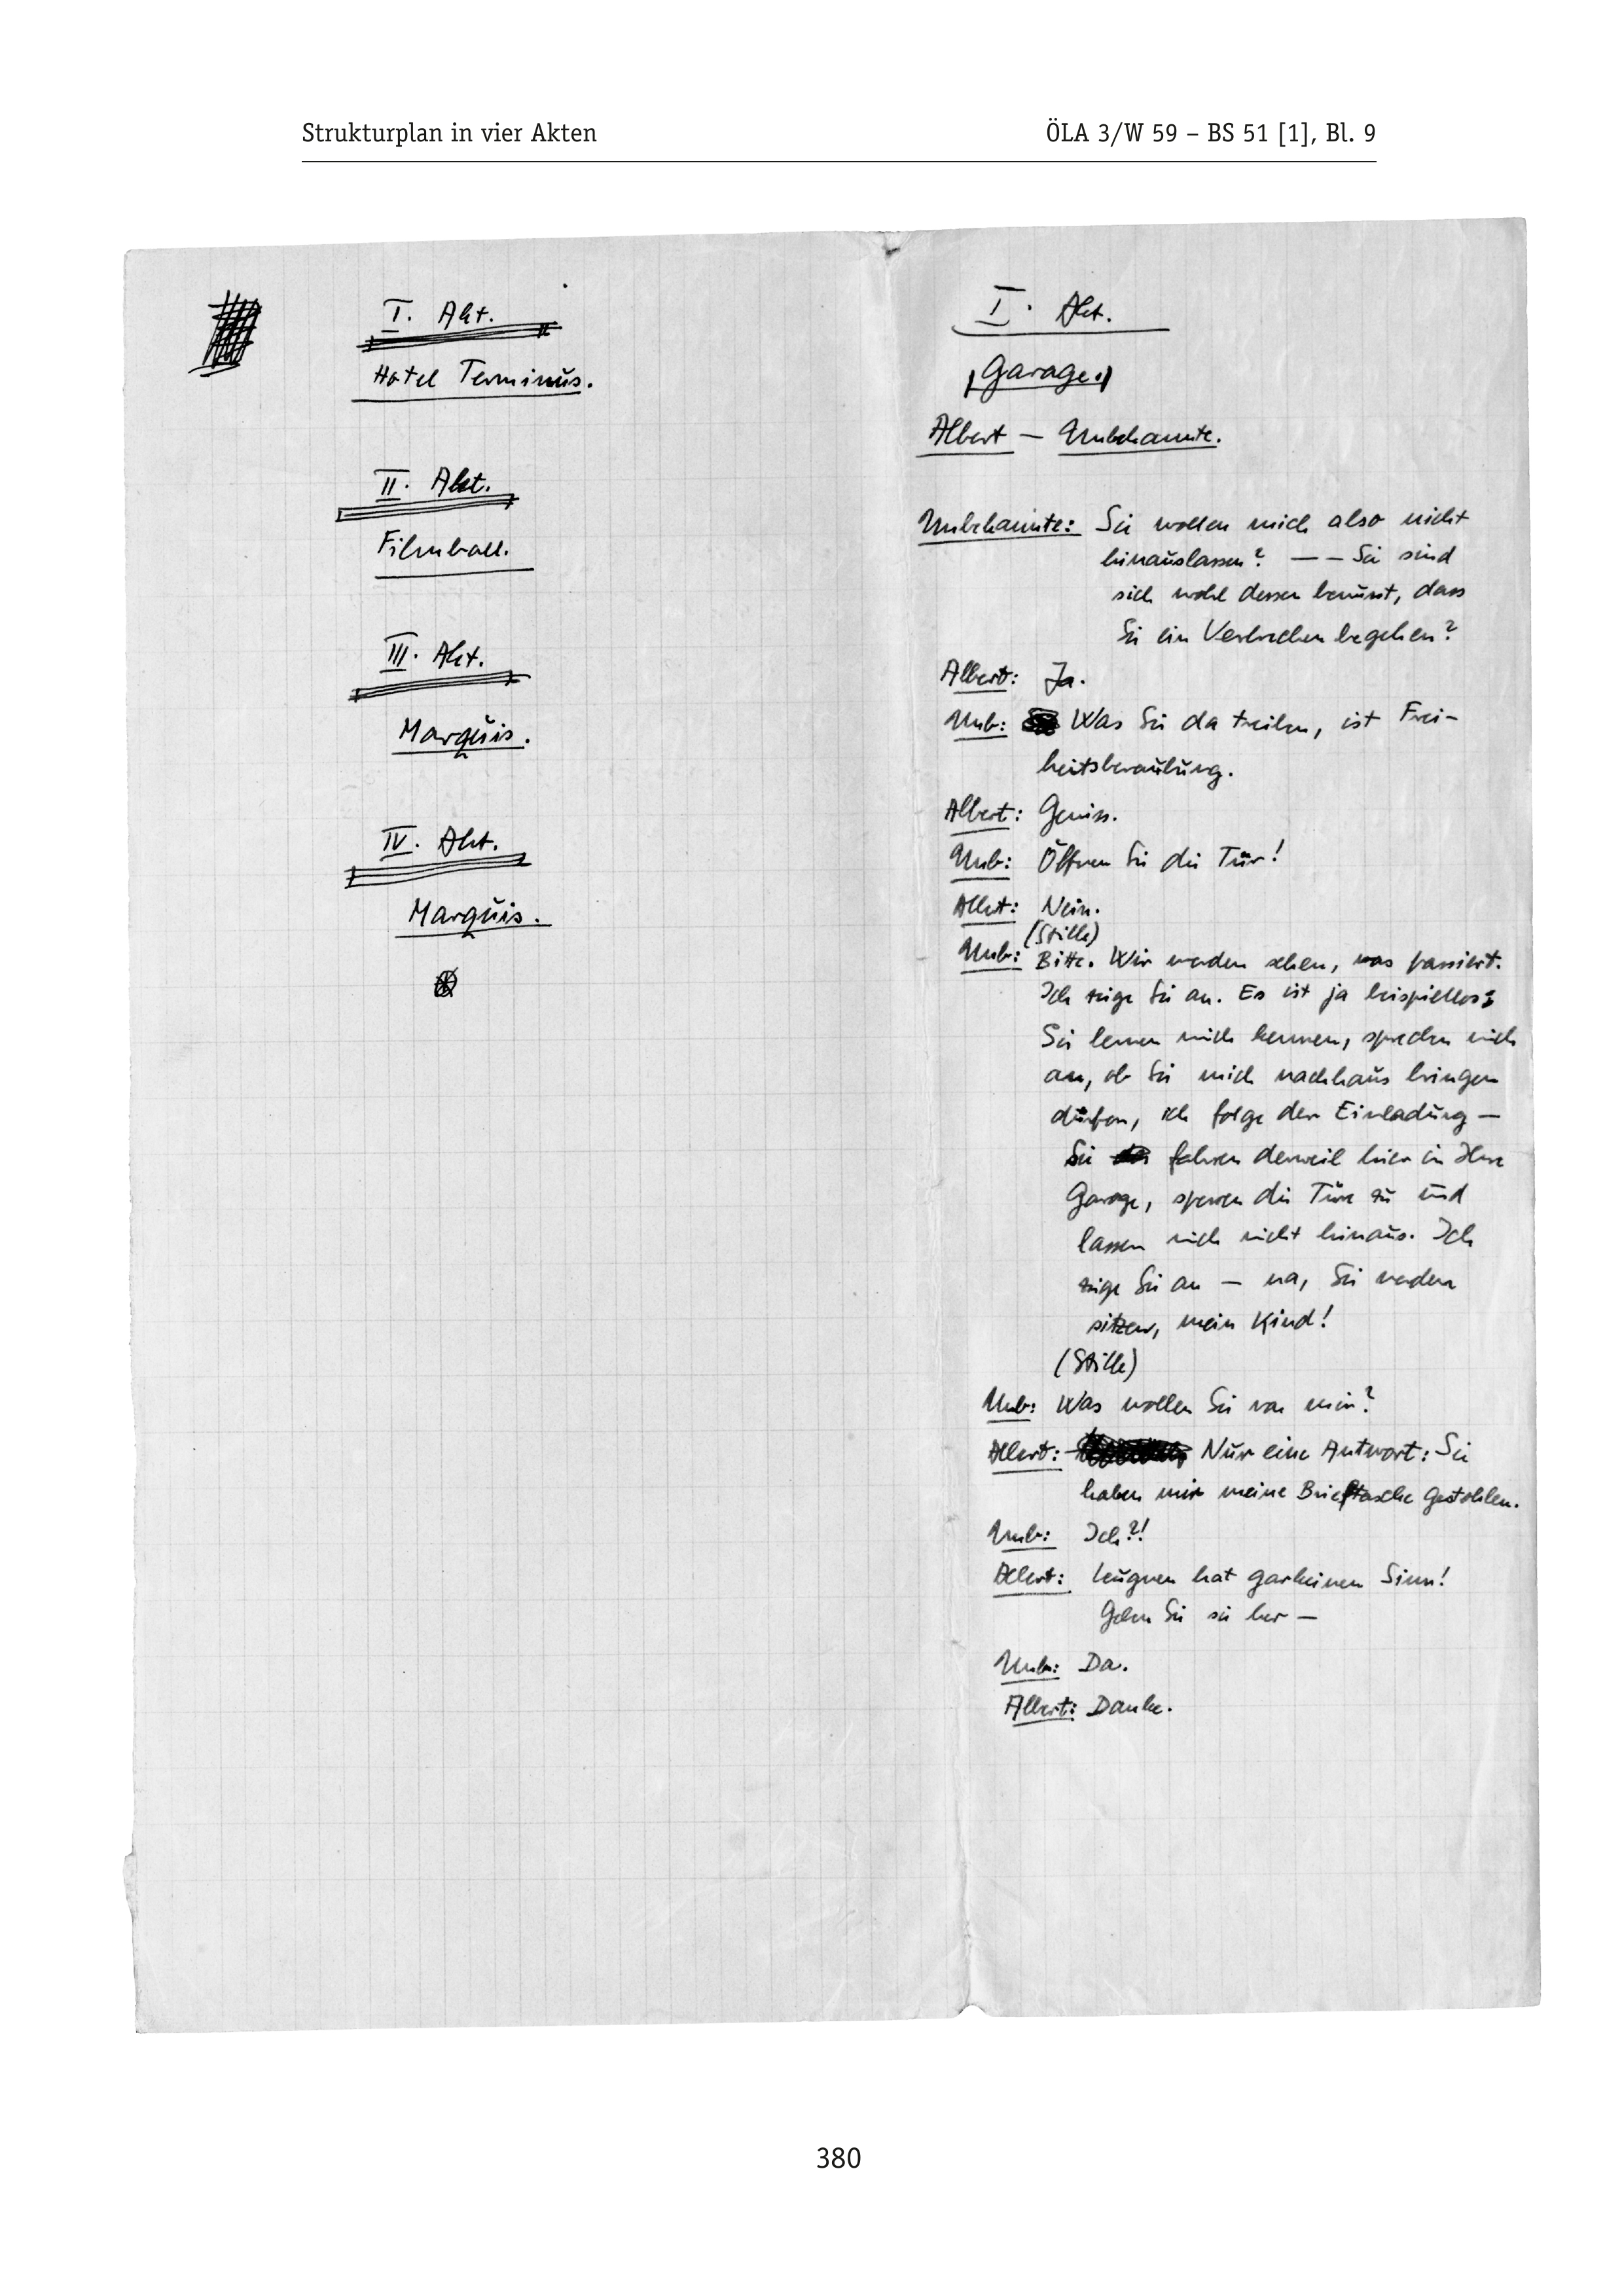 Strukturplan in vier Akten ÖLA 3/W 59 – BS 51 [1], Bl. 9
I. Akt.
Hotel Terminus.
II. Akt.
Filmball.
III. Akt.
Marquis.
IV. Akt.
Marquis.
I. Akt.
Garage.
Albert — Unbekannte.
Unbekannte: Sie wollen mich also nicht
hinauslassen? — — Sie sind
sich wohl dessen bewusst, dass
Sie ein Verbrechen begehen?
Albert: Ja.
Unb: Was Sie da treiben, ist Frei-
heitsberaubung.
Albert: Gewiss.
Unb: Öffnen Sie die Tür!
Albert: Nein.
(Stille)
Unb: Bitte. Wir werden sehen, was passiert.
Ich zeige Sie an. Es ist ja beispiellos:
Sie lernen mich kennen, sprechen mich
an, ob Sie mich nachhaus bringen
dürfen, ich folge der Einladung —
Sie fahren derweil hier in Ihre
Garage, sperren die Türe zu und
lassen mich nicht hinaus. Ich
zeige Sie an — na, Sie werden
sitzen, mein Kind!
(Stille)
Unb: Was wollen Sie von mir?
Albert: Nur eine Antwort: Sie
haben mir meine Brieftasche gestohlen.
Unb: Ich?!
Albert: Leugnen hat garkeinen Sinn!
Geben Sie sie her —
Unb: Da.
Albert: Danke.
380